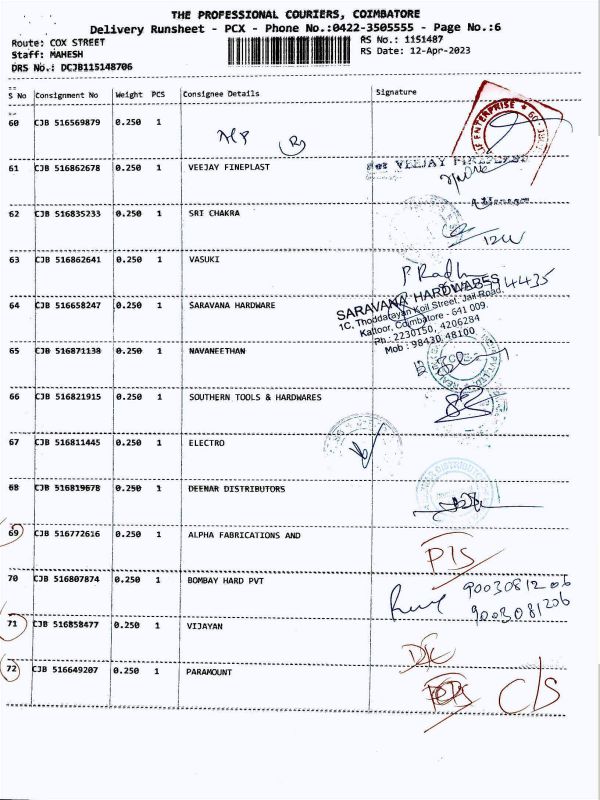 THE PROFESSIONAL COURIERS, COIMBATORE
Delivery Runsheet - PCX - Phone No.:0422-3505555 - Page No.:6
Route: COX STREET RS No.: 1151487
Staff: MAHESH RS Date: 12-Apr-2023
DRS No.: DCJB115148706
S No Consignment No Weight PCS Consignee Details Signature
60 CJB 516569879 0.250 1
ENTERPRISE
61 CJB 516862678 0.250 1 VEEJAY FINEPLAST
VEEJAY
62 CJB 516835233 0.250 1 SRI CHAKRA
63 CJB 516862641 0.250 1 VASUKI
64 CJB 516658247 0.250 1 SARAVANA HARDWARE
SARAVANA HARDWARES
1C, Thoddarayan Koil Street, Jail Road,
Kattoor, Coimbatore - 641 009.
Ph : 2230150, 4206284
Mob : 98430 48100
65 CJB 516871138 0.250 1 NAVANEETHAN
66 CJB 516821915 0.250 1 SOUTHERN TOOLS & HARDWARES
67 CJB 516811445 0.250 1 ELECTRO
68 CJB 516819678 0.250 1 DEENAR DISTRIBUTORS
69 CJB 516772616 0.250 1 ALPHA FABRICATIONS AND
70 CJB 516807874 0.250 1 BOMBAY HARD PVT
9003081206
9003081206
71 CJB 516858477 0.250 1 VIJAYAN
72 CJB 516649207 0.250 1 PARAMOUNT
C/S